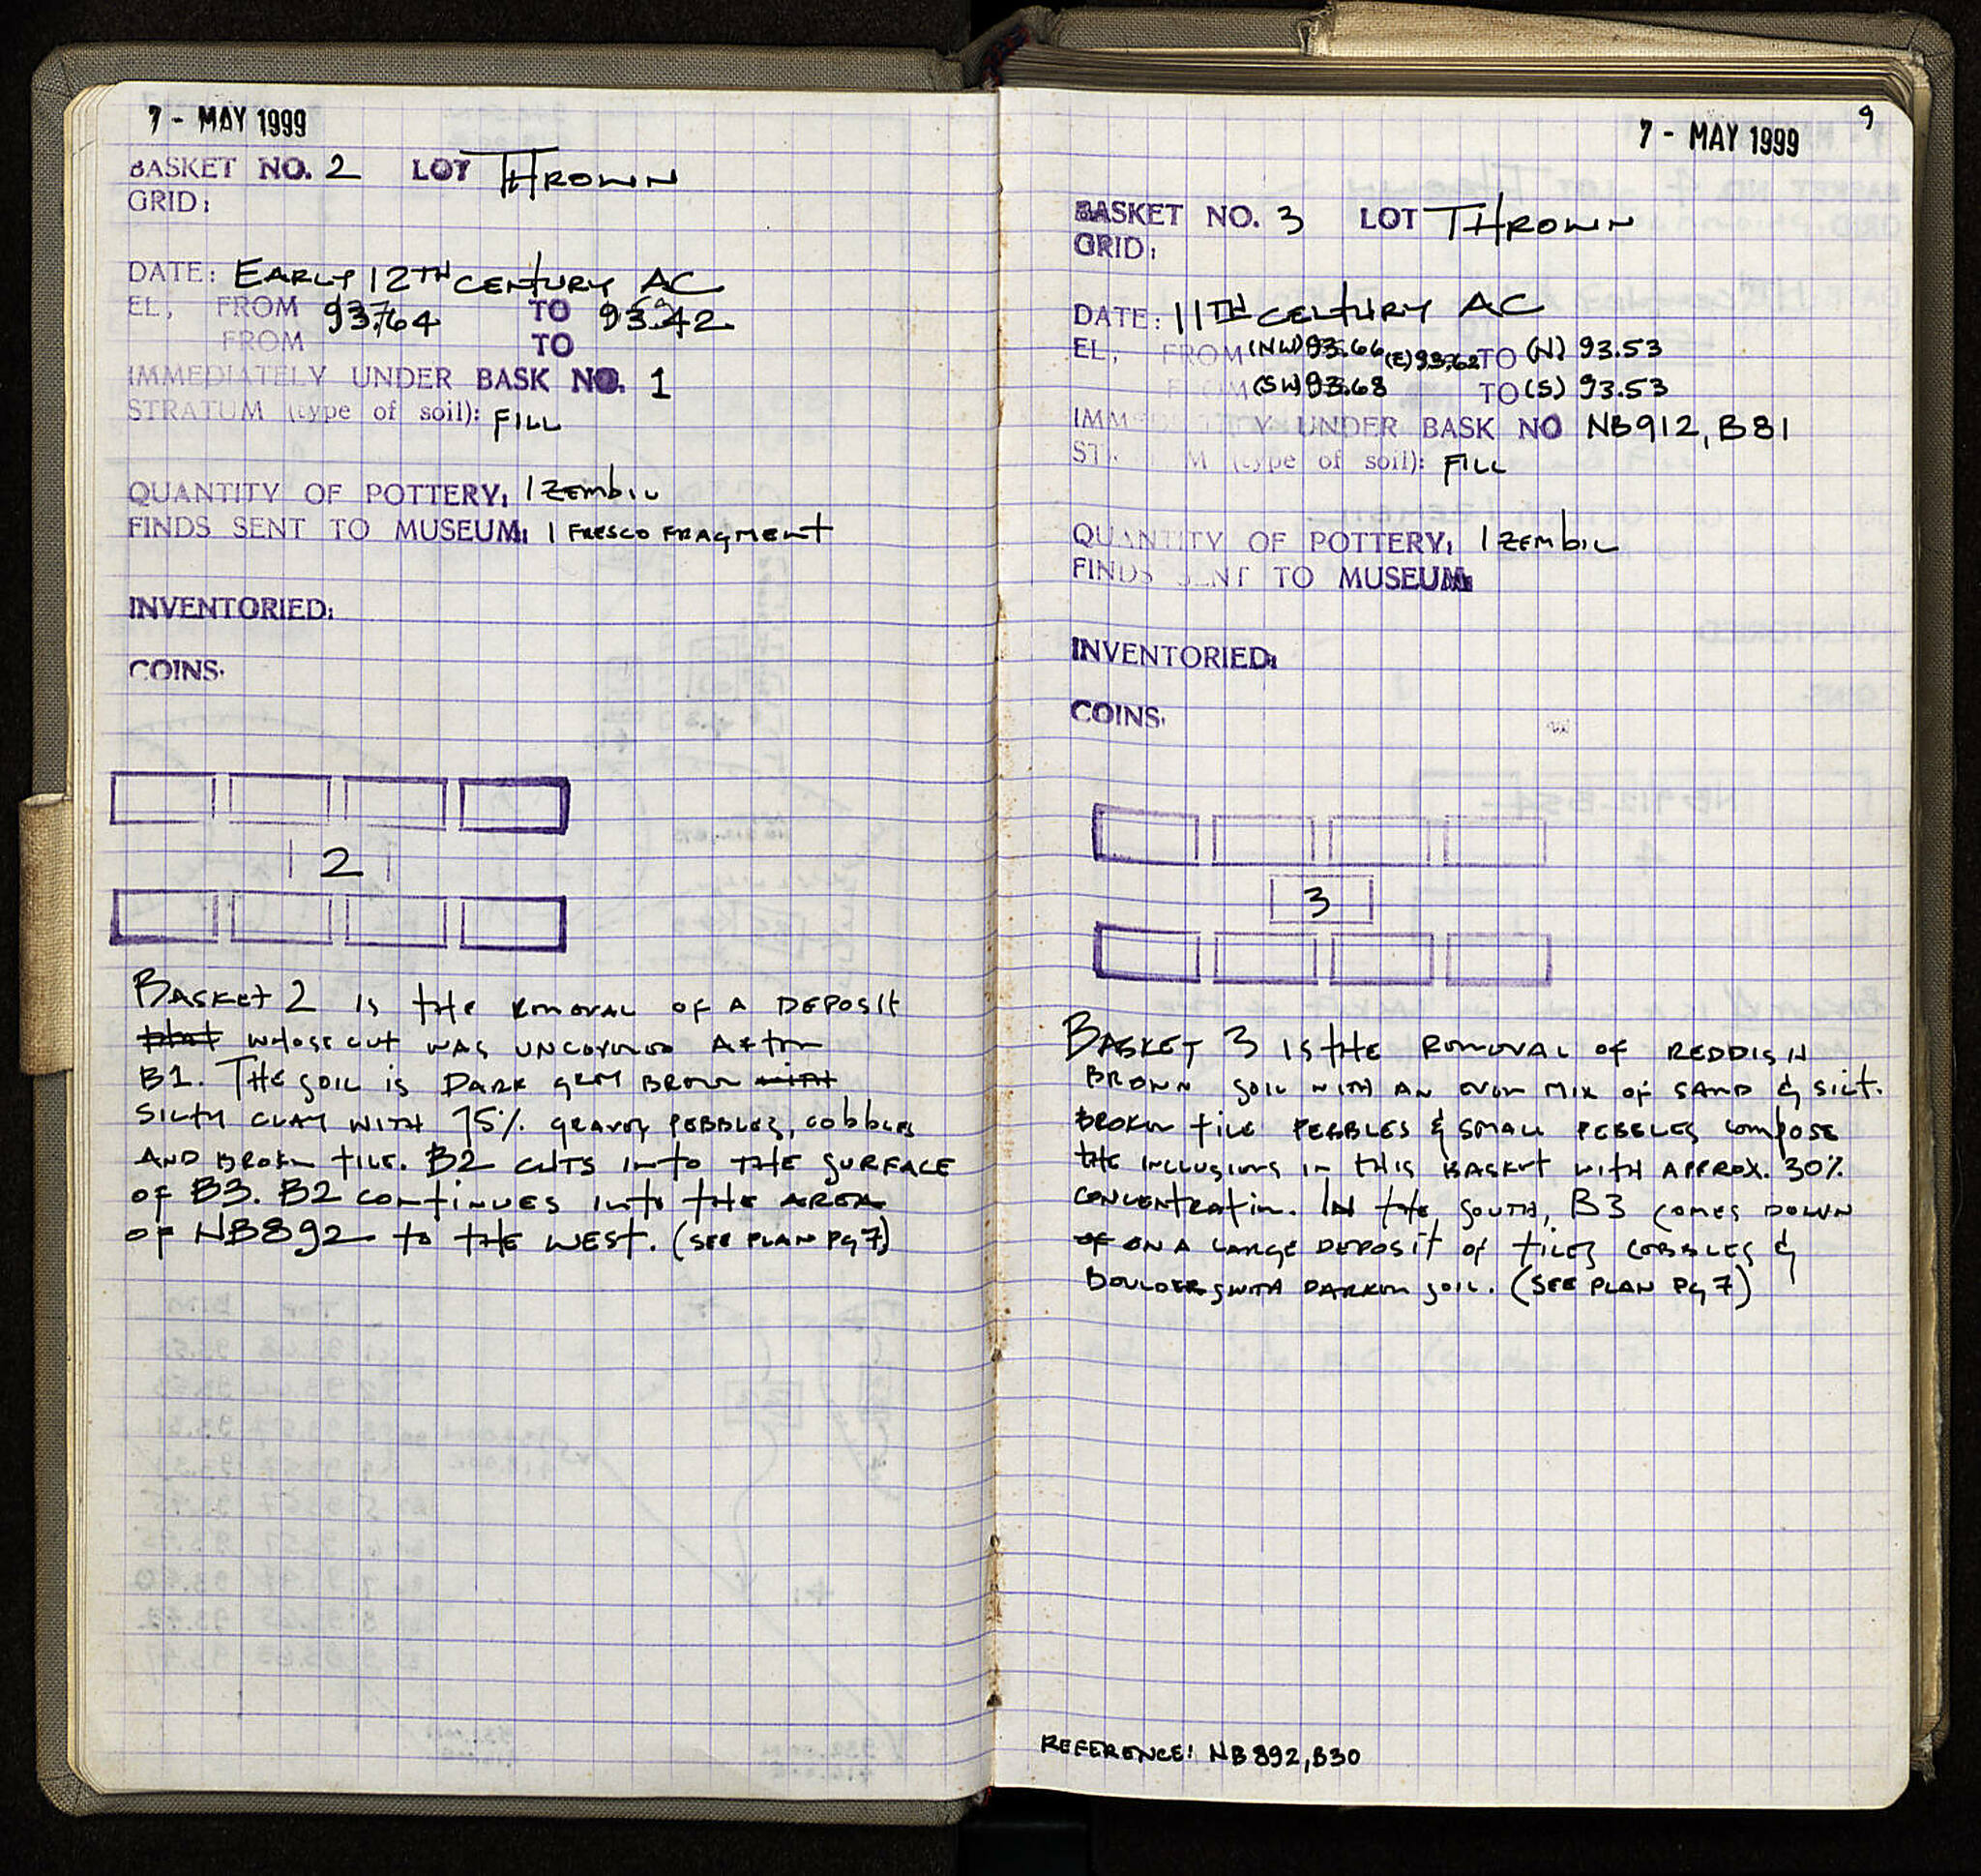 7 - MAY 1999
BASKET NO. 2 LOT THROWN
GRID:
DATE: EARLY 12TH CENTURY AC
EL, FROM 93.64 TO 93.42
FROM TO
IMMEDIATELY UNDER BASK NO. 1
STRATUM (type of soil): FILL
QUANTITY OF POTTERY: 1 ZEMBIL
FINDS SENT TO MUSEUM: 1 FRESCO FRAGMENT
INVENTORIED:
COINS.
2
BASKET 2 IS THE REMOVAL OF A DEPOSIT
that WHOSE CUT WAS UNCOVERED AFTER
B1. THE SOIL IS DARK GREY BROWN with
SILTY CLAY WITH 75% GRAVEL PEBBLES, COBBLES
AND BROKEN TILE. B2 CUTS INTO THE SURFACE
OF B3. B2 CONTINUES INTO THE AREA
OF NB892 TO THE WEST. (SEE PLAN PG 7)
9
7 - MAY 1999
BASKET NO. 3 LOT THROWN
GRID:
DATE: 11TH CENTURY AC
EL, FROM (NW) 93.66 (E) 93.62 TO (N) 93.53
FROM (SW) 93.68 TO (S) 93.53
IMMEDIATELY UNDER BASK NO NB912, B81
STRATUM (type of soil): FILL
QUANTITY OF POTTERY: 1 ZEMBIL
FINDS SENT TO MUSEUM:
INVENTORIED:
COINS.
3
BASKET 3 IS THE REMOVAL OF REDDISH
BROWN SOIL WITH AN EVEN MIX OF SAND & SILT.
BROKEN TILE PEBBLES & SMALL PEBBLES COMPOSE
THE INCLUSIONS IN THIS BASKET WITH APPROX. 30%
CONCENTRATION. IN THE SOUTH, B3 COMES DOWN
OF ON A LARGE DEPOSIT OF TILES COBBLES &
BOULDERS WITH DARKER SOIL. (SEE PLAN PG 7)
REFERENCE: NB892, B30